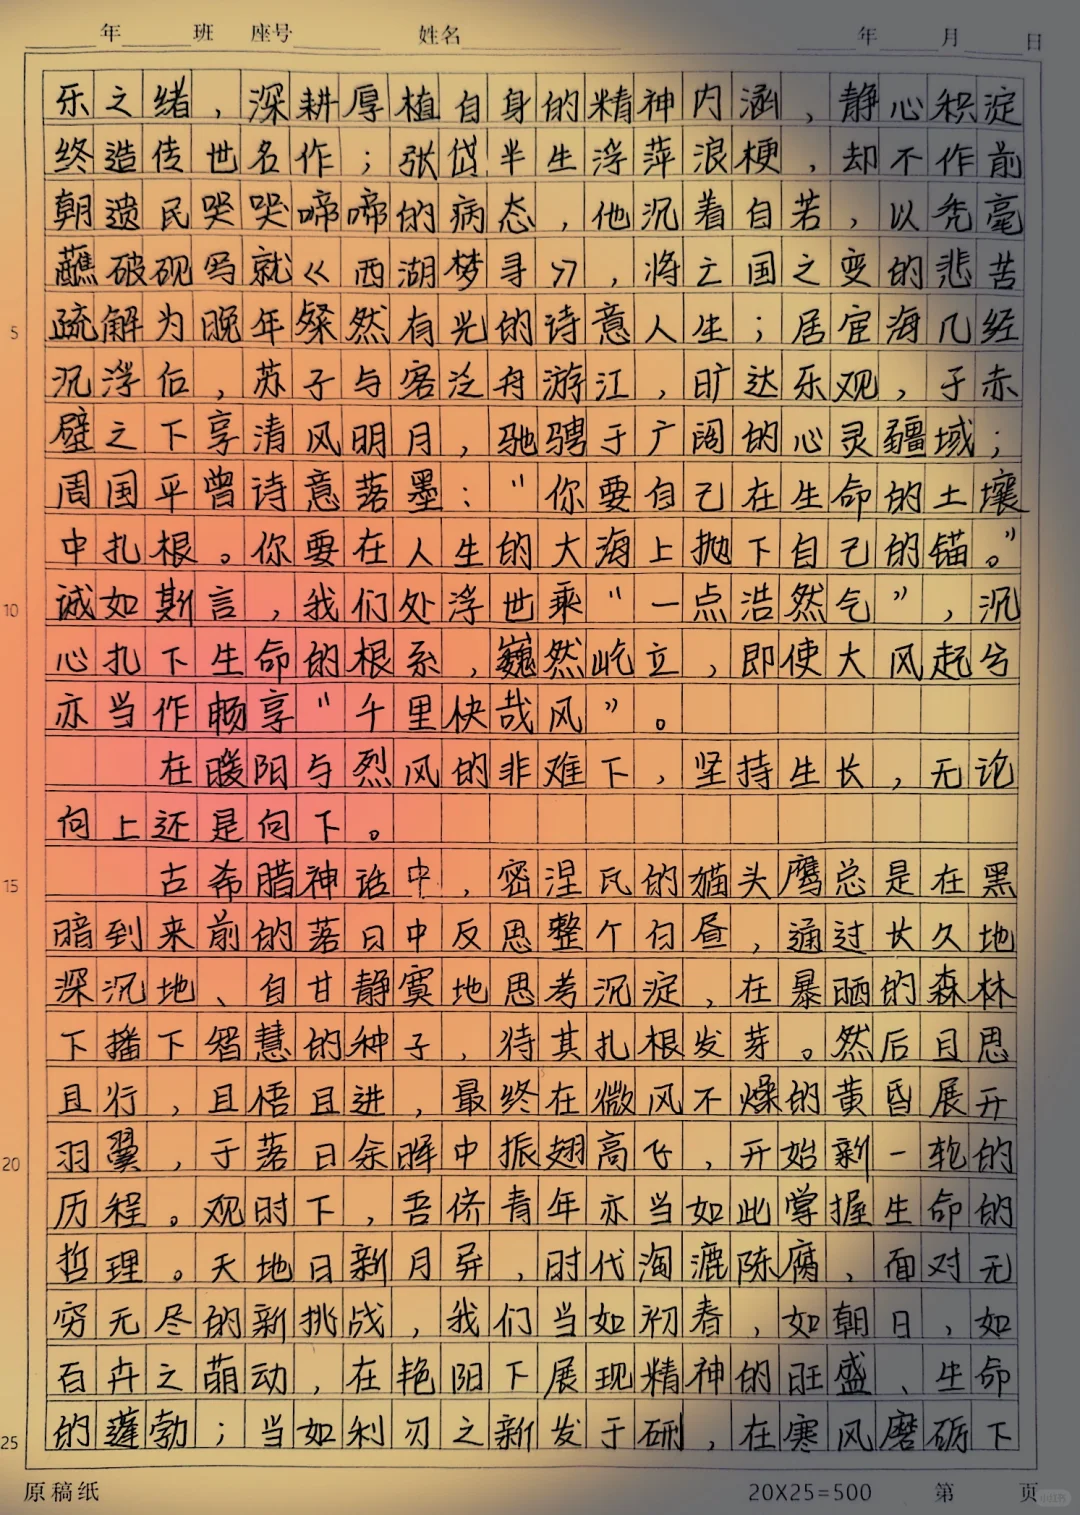 年 班 座号 姓名 年 月 日
乐之绪，深耕厚植自身的精神内涵，静心积淀
终造传世名作；张岱半生浮萍浪梗，却不作前
朝遗民哭哭啼啼的病态，他沉着自若，以秃毫
蘸破砚写就《西湖梦寻》，将亡国之变的悲苦
5 疏解为晚年粲然有光的诗意人生；居宦海几经
沉浮后，苏子与客泛舟游江，旷达乐观，于赤
壁之下享清风明月，驰骋于广阔的心灵疆域；
周国平曾诗意落墨：“你要自己在生命的土壤
中扎根。你要在人生的大海上抛下自己的锚。”
10 诚如斯言，我们处浮世乘“一点浩然气”，沉
心扎下生命的根系，巍然屹立，即使大风起兮
亦当作畅享“千里快哉风”。
在暖阳与烈风的非难下，坚持生长，无论
向上还是向下。
15 古希腊神话中，密涅瓦的猫头鹰总是在黑
暗到来前的落日中反思整个白昼，通过长久地
深沉地、自甘静寞地思考沉淀，在暴晒的森林
下播下智慧的种子，待其扎根发芽。然后且思
且行，且悟且进，最终在微风不燥的黄昏展开
20 羽翼，于落日余晖中振翅高飞，开始新一轮的
历程。观时下，吾侪青年亦当如此掌握生命的
哲理。天地日新月异，时代淘漉陈腐，面对无
穷无尽的新挑战，我们当如初春，如朝日，如
百卉之萌动，在艳阳下展现精神的旺盛、生命
25 的蓬勃；当如利刃之新发于硎，在寒风磨砺下
原稿纸 20X25=500 第 页
小红书